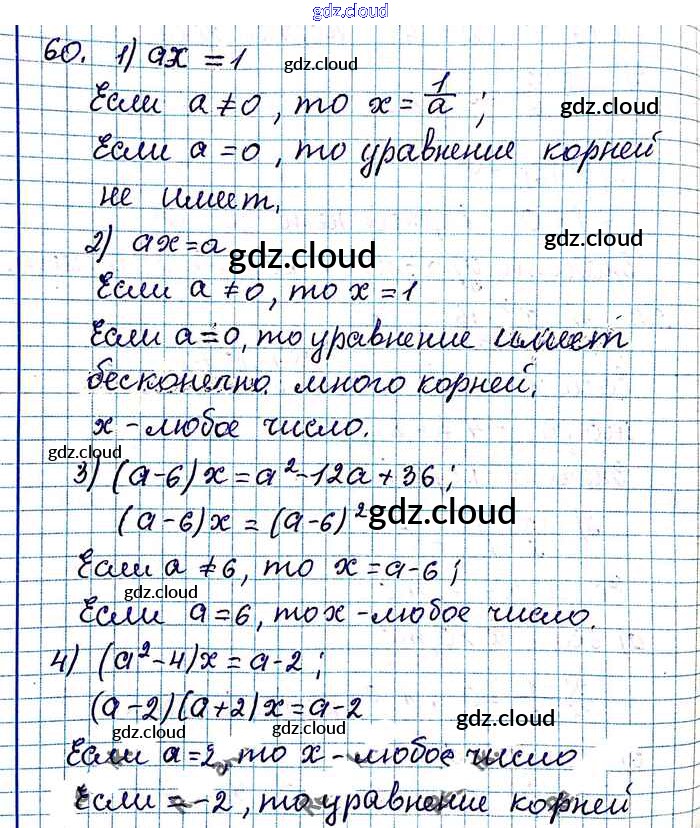 gdz.cloud
60. 1) ax = 1 gdz.cloud
Если a ≠ 0, то x = 1/a ; gdz.cloud
Если a = 0, то уравнение корней
не имеет.
2) ax = a gdz.cloud gdz.cloud
Если a ≠ 0, то x = 1
Если a = 0, то уравнение имеет
бесконечно много корней.
x - любое число.
gdz.cloud
3) (a-6)x = a² - 12a + 36 ;
(a-6)x = (a-6)² gdz.cloud
Если a ≠ 6, то x = a-6 ;
gdz.cloud gdz.cloud
Если a = 6, то x - любое число.
4) (a²-4)x = a-2 ;
(a-2)(a+2)x = a-2 gdz.cloud
gdz.cloud gdz.cloud
Если a = 2, то x - любое число
Если = -2, то уравнение корней